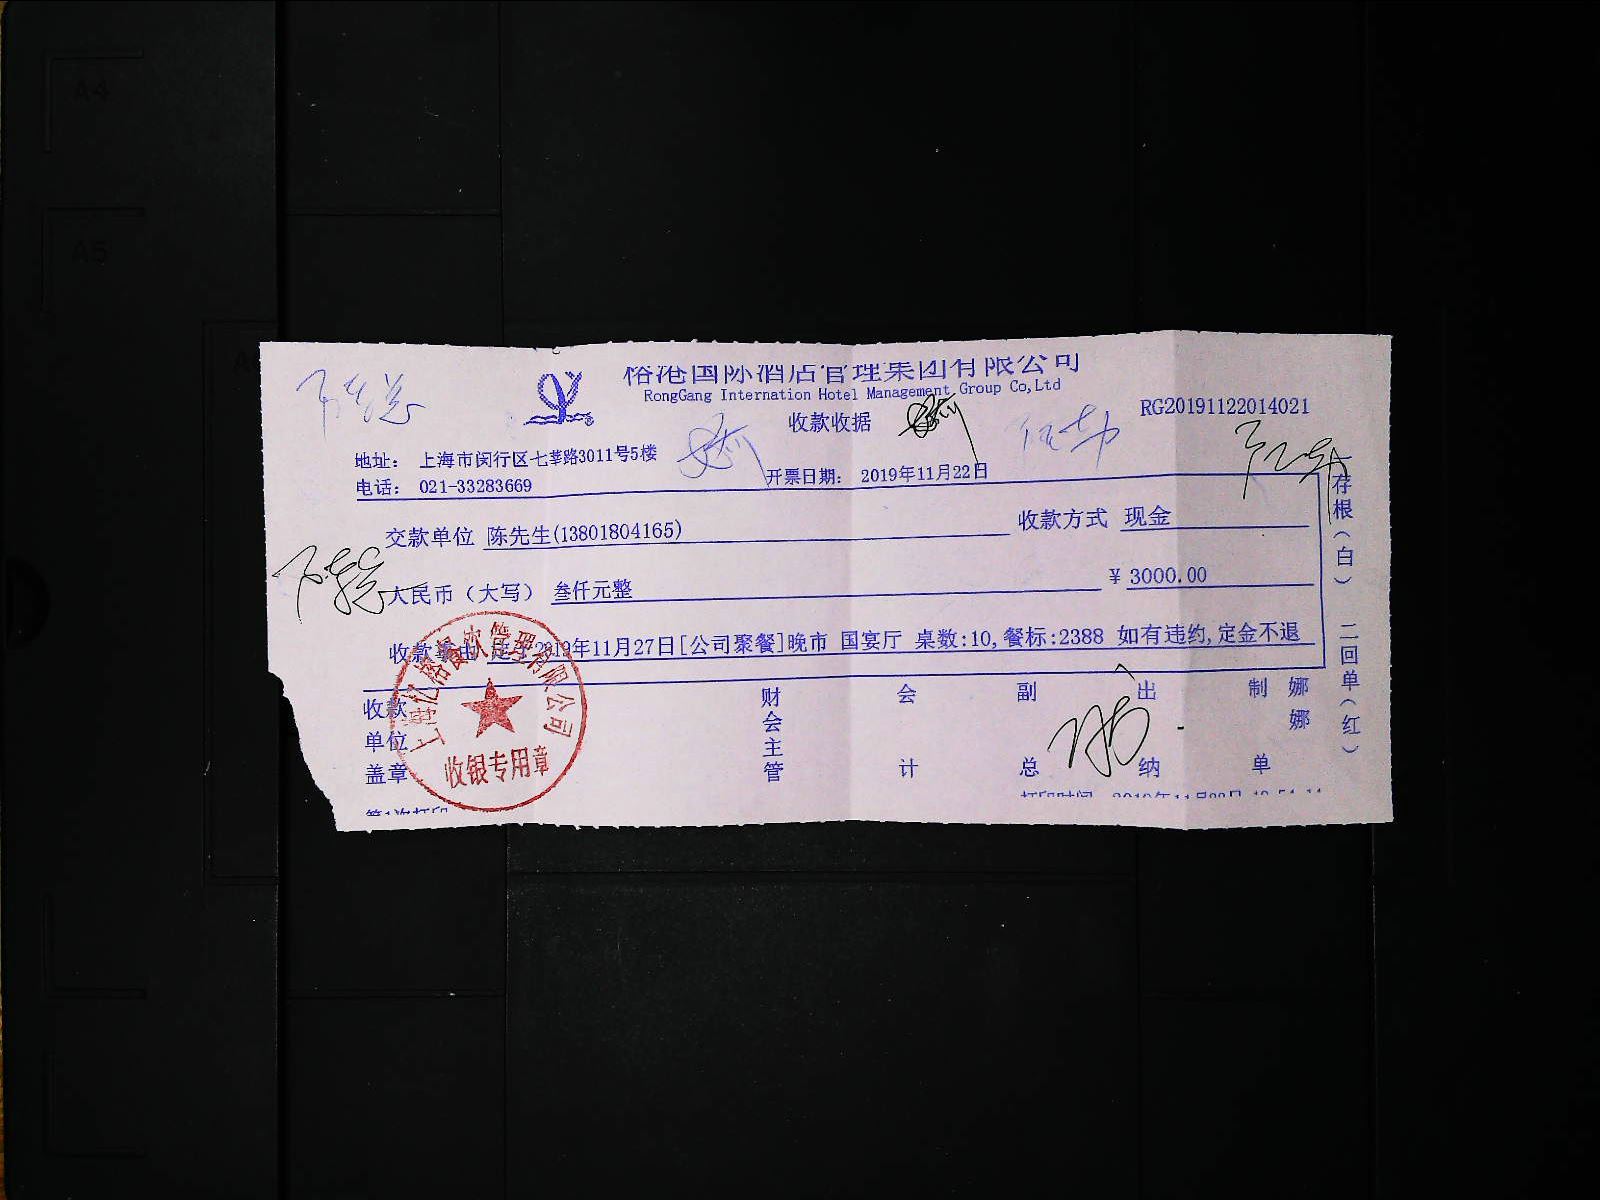 A4
A5
裕港国际酒店管理集团有限公司
RongGang Internation Hotel Management Group Co,Ltd
收款收据
RG20191122014021
地址： 上海市闵行区七莘路3011号5楼
电话： 021-33283669
开票日期： 2019年11月22日
交款单位 陈先生(13801804165)
收款方式 现金
人民币（大写） 叁仟元整
¥ 3000.00
收款事由 定于2019年11月27日[公司聚餐]晚市 国宴厅 桌数:10,餐标:2388 如有违约,定金不退
收款单位盖章
财会主管
会计
副总
出纳
制单
娜娜
存根（白） 二回单（红）
餐饮管理有限公司
收银专用章
第1次打印
打印时间